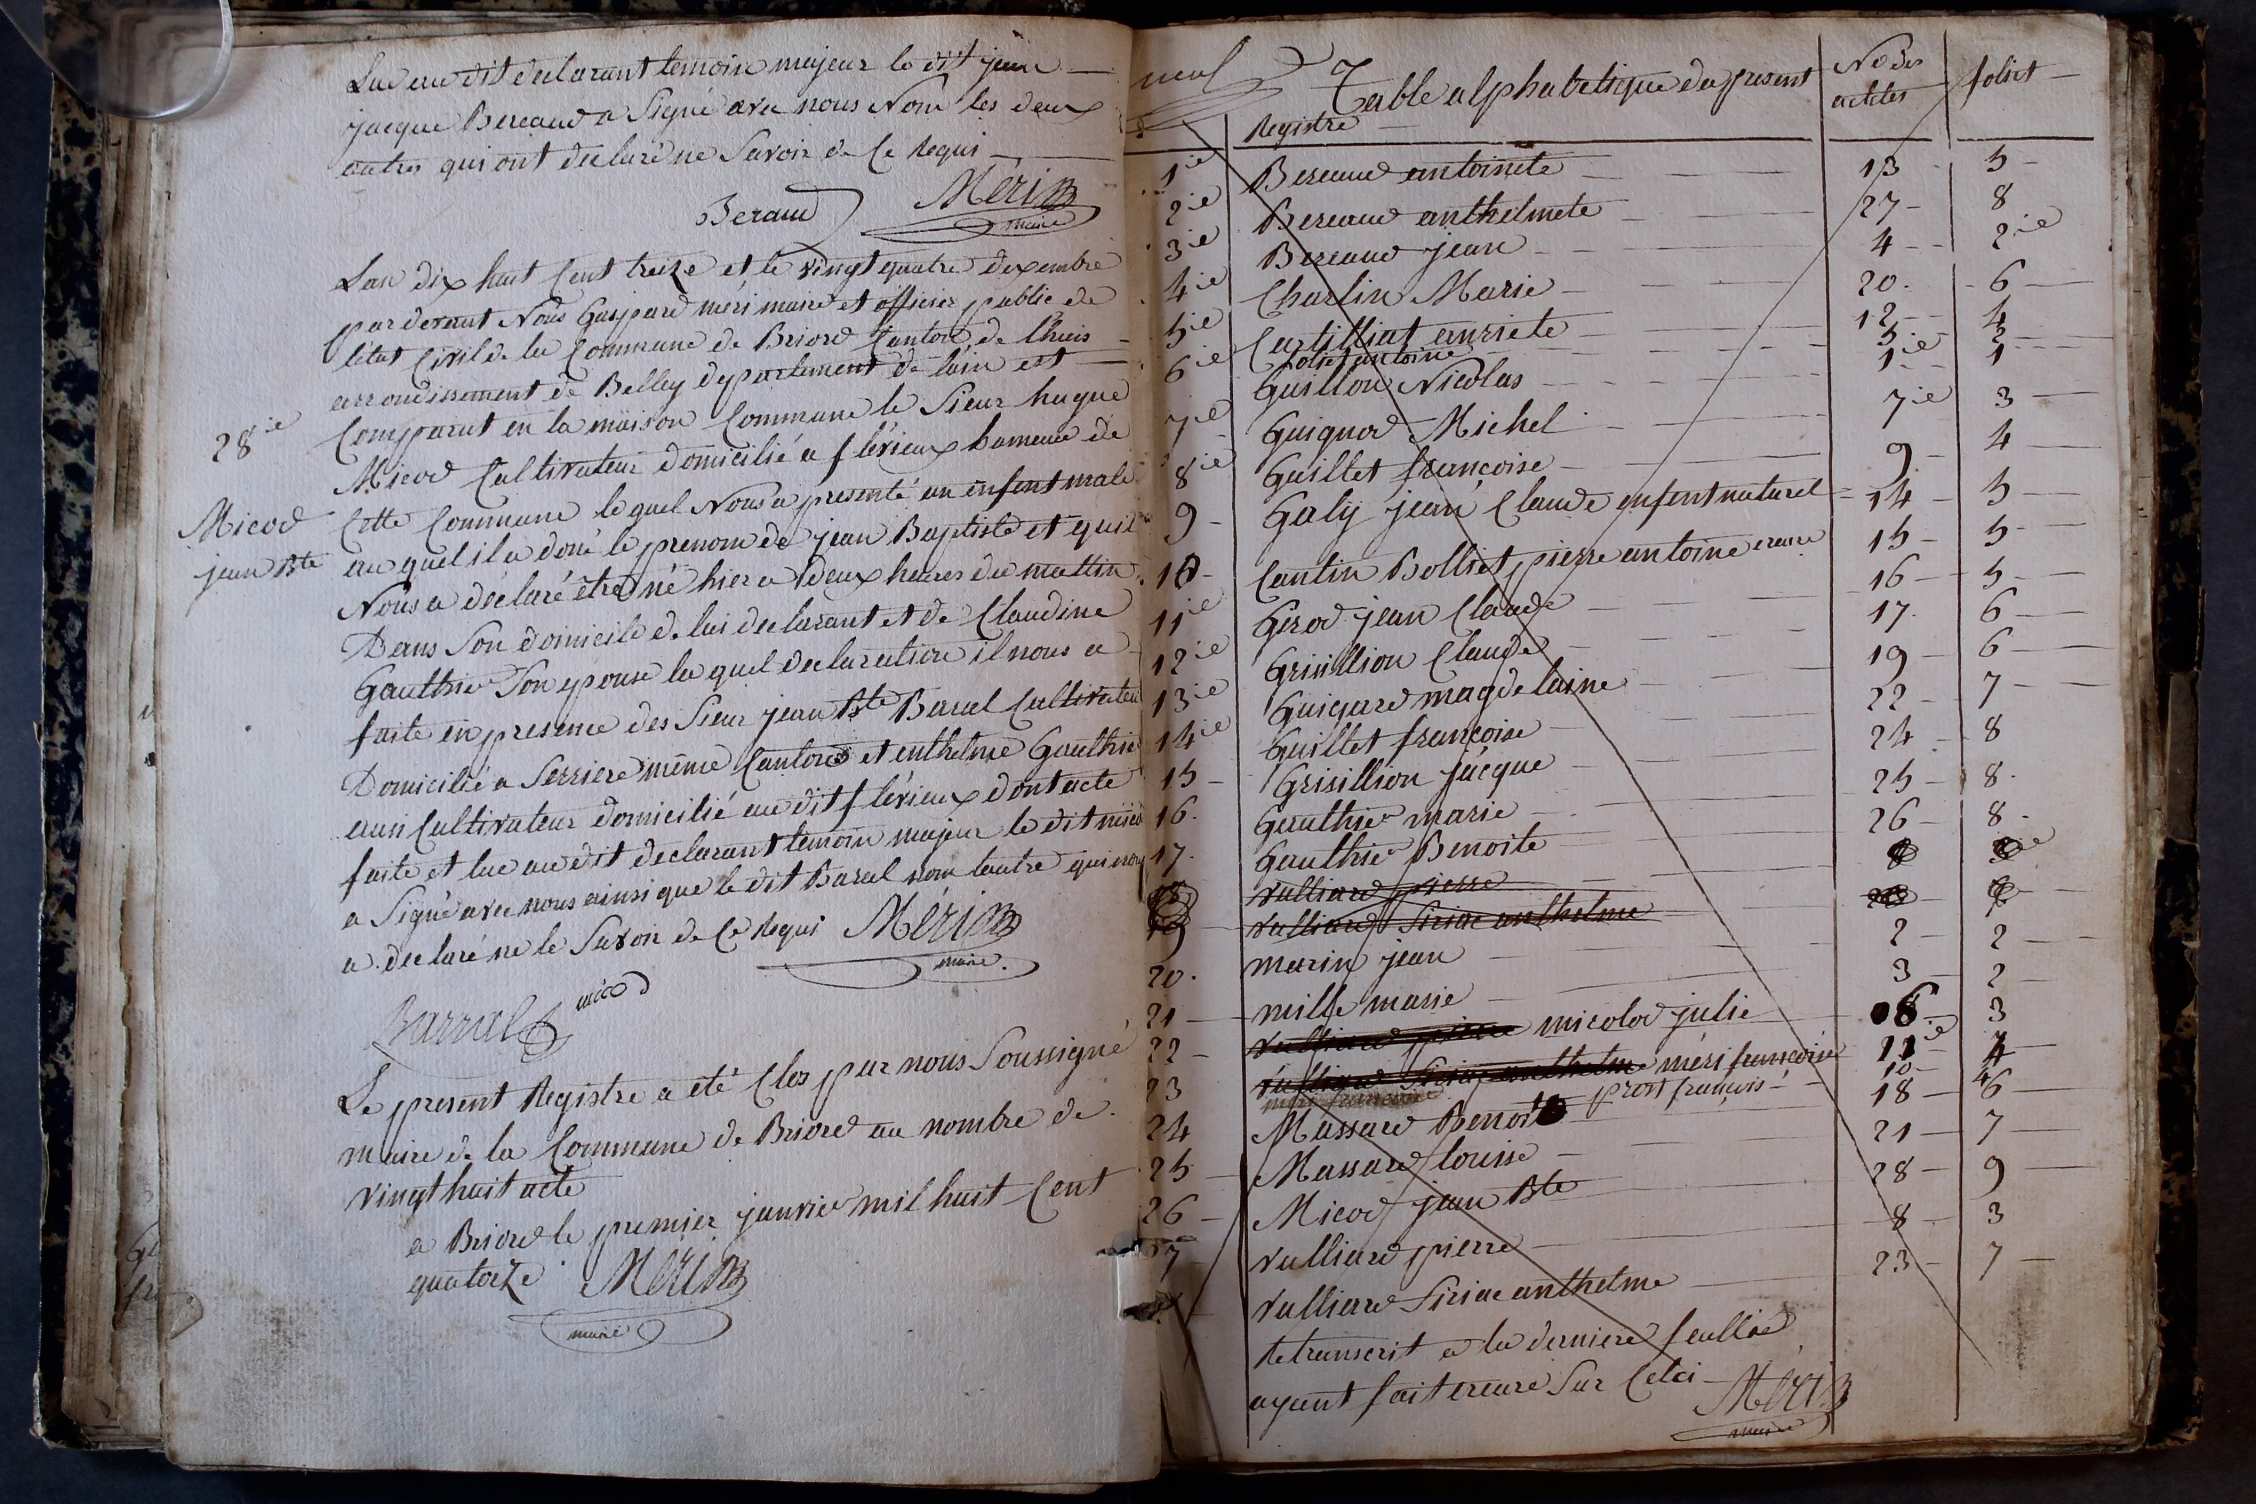 Lue au dit declarant temoin majeur le dit jean
jacque Bereaud a Signé avec nous Non les deux
autres qui ont declaré ne Savoir de Ce Requi
Beraud Méri
maire
Lan dix huit Cent treize et le vingt quatre dexembre
par devant Nous Gaspard méri maire et officier public de
létat Civil de la Commune de Briord Canton de lhuis
arrondissement de Belley departement de lain est
Comparut en la maison Commune le Sieur hugue
28ie
Micod Cultivateur domicilié a flérieux hameau de
Cette Commune le quel Nous a presenté un enfent male
Micod
jean Bte
au quel il a doné le prenom de jean Baptiste et quil
Nous a déclaré être né hier a deux heures du mattin
Dans Son domicile de lui declarant et de Claudine
Gauthier Son epouse la quel declaration il nous a
faite en presence des Sieur jean Bte Baral Cultivateur
Domicilié a Serriere même Canton et enthelme Gauthier
aussi Cultivateur domicilié au dit flérieux dont acte
faite et lue au dit declarant temoin majeur le dit micod
a Signé avec nous ainsi que le dit Baral non lautre qui nous
a declaré ne le Savoir de Ce Requi Méri
maire
Barral micod
Le present Registre a eté Clos par nous Soussigné
maire de la Commune de Briord au nombre de
vingt huit acte
a Briord le premier janvier mil huit Cent
quatorze Méri
maire
neuf
Table alphabetique du present
Registre
No des
actes
foliet
1ie Bereaud antoinete 13 5
2ie Bereaud anthelmete 27 8
3ie Bereaud jean 4 2ie
4ie Charlin Marie 20 6
5ie Catilliat anriete 12 4
foliet antoine 5 2
6ie Guillon Nicolas 1ie 1
7ie Guignod Michel 7ie 3
8ie Guillet françoise 9 4
9 Galy jean Claude enfent naturel 14 5
10 Cantin Bolliet pierre antoine ereure 15 5
11ie Gerod jean Claude 16 5
12ie Grisillion Claude 17 6
13ie Guigard magdelaine 19 6
14ie Guillet françoise 22 7
15 Grisillion jacque 24 8
16 Gauthier marie 25 8
17 Gauthier Benoite 26 8
vulliard pierre
19 vulliard Siriac anthelme
20 marin jean 2 2
21 mille marie 3 2
22 vulliard pierre micolod julie 6 3
23 vulliard Siriac anthelme méri françoise 11ie 4
prost françois 10 4
24 Massard Benoit 18 6
25 Massard louise 21 7
26 Micod jean Bte 28 9
27 vulliard pierre 8 3
vulliard Siriac anthelme 23 7
Retranscrit a la derniere feullie
ayant fait ereure Sur Celci
Méri
maire